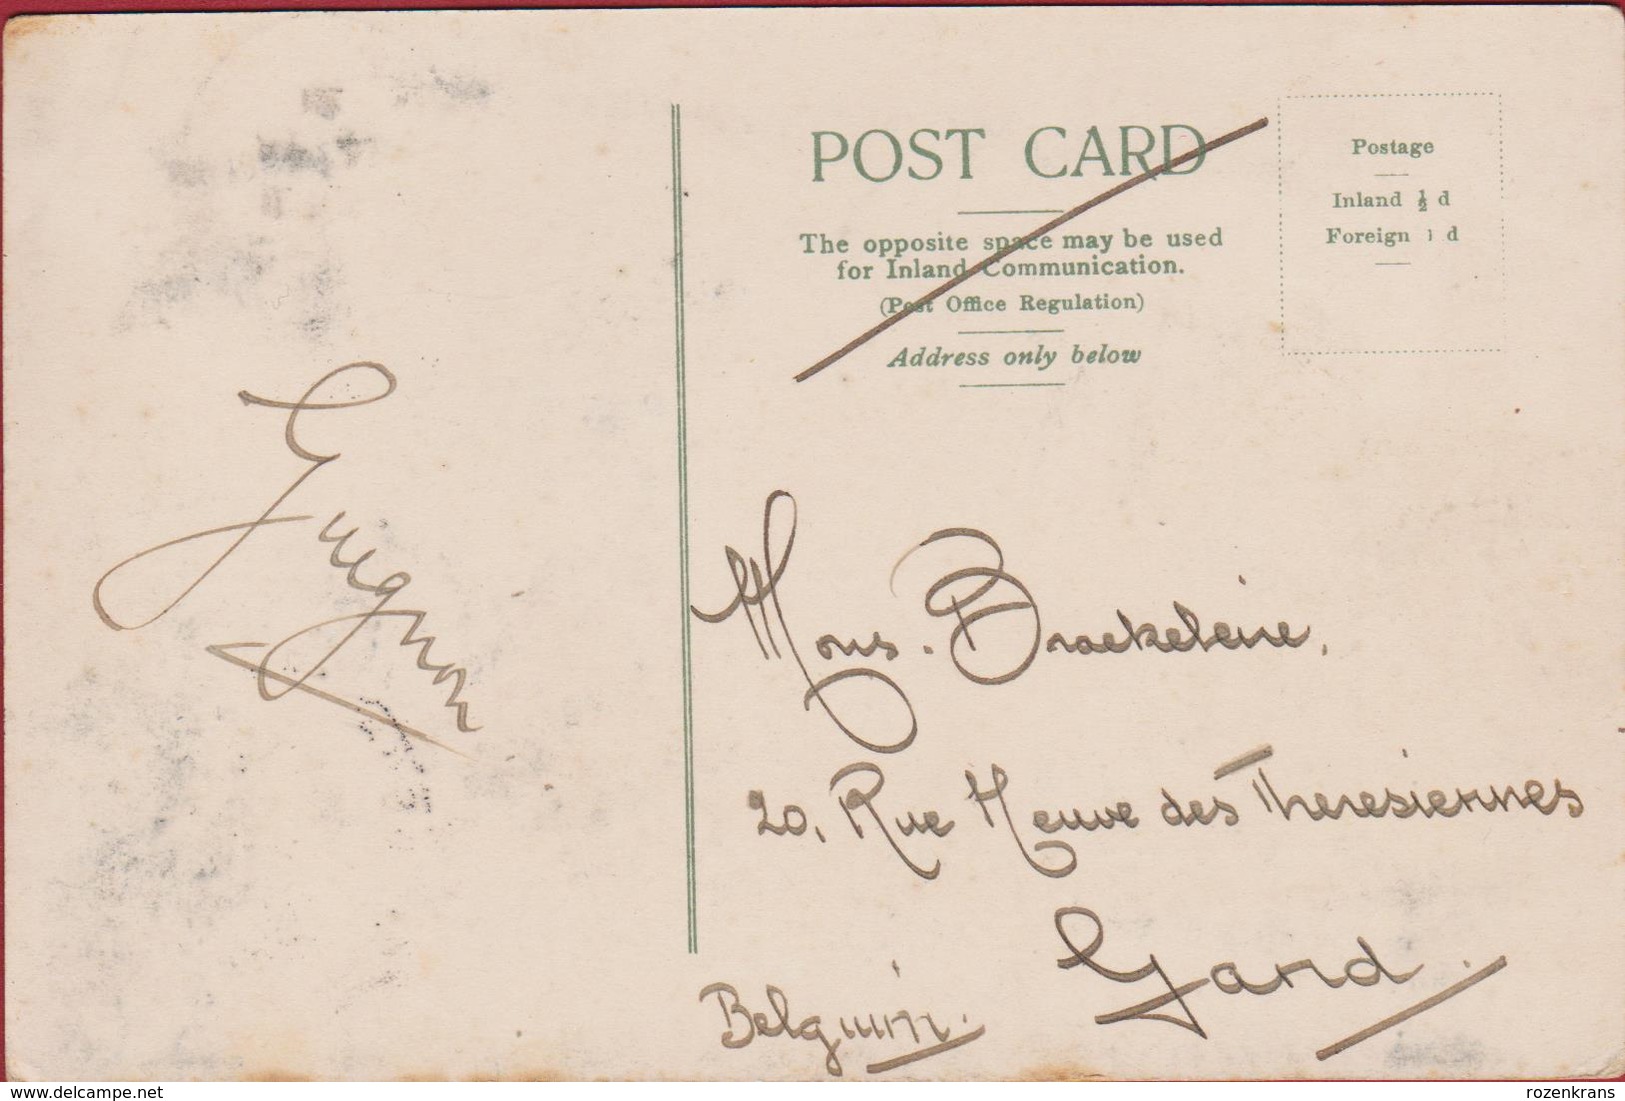 POST CARD
The opposite space may be used
for Inland Communication.
(Post Office Regulation)
Address only below
Postage
Inland ½ d
Foreign 1 d
Mons. Braekeleire,
20, Rue Neuve des Theresiennes
Gand.
Belgium.
© DELCAMPE.net
rozenkrans